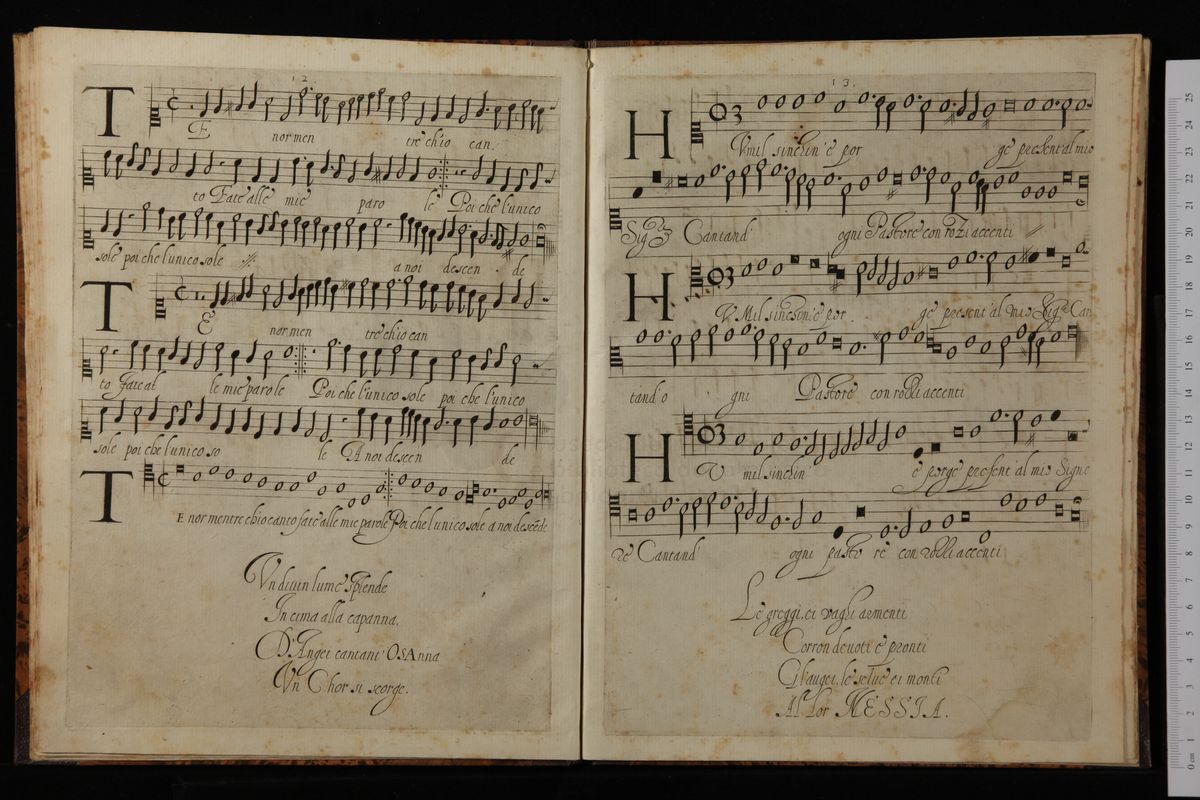 12
T E nor men tre ch'io can.
to Fate alle mie paro le Poi che l'unico
sole poi che l'unico sole a noi descen de
T E nor men tre chio can
to fate al le mie parole Poi che l'unico sole poi che l'unico
sole poi che l'unico so le A noi descen de
T E nor mentre chio canto fate alle mie parole Poi che l'unico sole a noi descēde
Vn diuin lume splende
In cima alla capanna.
D'Angei cantant' OSAnna
Vn Chor si scorge.
13
H Vmil s'inchin' e por ge present' al mio
Sig.re Cantand' ogni Pastore con rozi accenti
H V Mil s'inchin' e por ge present' al mio Sig.re Can
tand o gni Pastore con rozzi accenti
H V mil s'inchin' e porge present' al mio Signo
re Cantand' ogni pasto re con rozzi accenti
Le greggi, ei vaghi armenti
Corron deuoti e pronti
Gl'augei, le selue ei monti
Al lor MESSIA.
25
24
23
22
21
20
19
18
17
16
15
14
13
12
11
10
9
8
7
6
5
4
3
2
1
0 cm